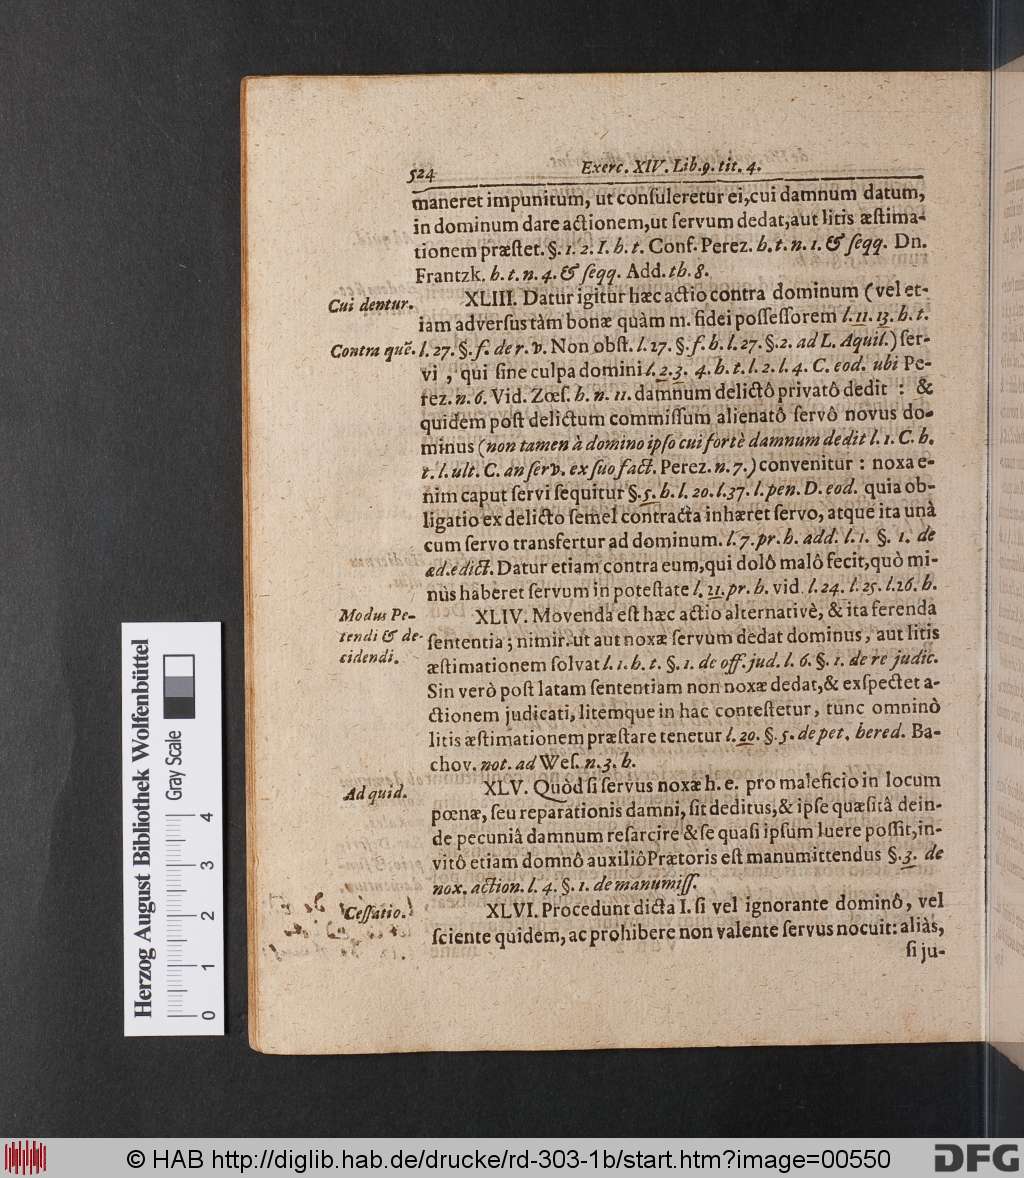 524
Exerc. XIV. Lib. 9. tit. 4.
maneret impunitum, ut conſuleretur ei, cui damnum datum,
in dominum dare actionem, ut ſervum dedat, aut litis æſtima-
tionem præſtet. §. 1. 2. I. h. t. Conf. Perez. h. t. n. 1. & ſeqq. Dn.
Frantzk. h. t. n. 4. & ſeqq. Add. th. 8.
Cui dentur.
XLIII. Datur igitur hæc actio contra dominum (vel et-
iam adverſus tàm bonæ quàm m. fidei poſſeſſorem l. 11. 13. h. t.
Contra quē.
l. 27. §. f. de r. v. Non obſt. l. 27. §. f. h. l. 27. §. 2. ad L. Aquil.) ſer-
vi , qui ſine culpa domini l. 2. 3. 4. h. t. l. 2. l. 4. C. eod. ubi Pe-
rez. n. 6. Vid. Zœſ. h. n. 11. damnum delictô privatô dedit : &
quidem poſt delictum commiſſum alienatô ſervô novus do-
minus (non tamen à domino ipſo cui fortè damnum dedit l. 1. C. h.
t. l. ult. C. an ſerv. ex ſuo fact. Perez. n. 7.) convenitur : noxa e-
nim caput ſervi ſequitur §. 5. h. l. 20. l. 37. l. pen. D. eod. quia ob-
ligatio ex delicto ſemel contracta inhæret ſervo, atque ita unà
cum ſervo transfertur ad dominum. l. 7. pr. h. add. l. 1. §. 1. de
æd. edict. Datur etiam contra eum, qui dolô malô fecit, quò mi-
nus haberet ſervum in poteſtate l. 21. pr. h. vid. l. 24. l. 25. l. 26. h.
Modus Pe-
tendi & de-
cidendi.
XLIV. Movenda eſt hæc actio alternativè, & ita ferenda
ſententia; nimir. ut aut noxæ ſervum dedat dominus, aut litis
æſtimationem ſolvat l. 1. h. t. §. 1. de off. jud. l. 6. §. 1. de re judic.
Sin verò poſt latam ſententiam non noxæ dedat, & exſpectet a-
ctionem judicati, litemque in hac conteſtetur, tunc omninò
litis æſtimationem præſtare tenetur l. 20. §. 5. de pet. hered. Ba-
chov. not. ad Weſ. n. 3. h.
Ad quid.
XLV. Quòd ſi ſervus noxæ h. e. pro maleficio in locum
pœnæ, ſeu reparationis damni, ſit deditus, & ipſe quæſitâ dein-
de pecuniâ damnum reſarcire & ſe quaſi ipſum luere poſſit, in-
vitô etiam domnô auxiliô Prætoris eſt manumittendus §. 3. de
nox. action. l. 4. §. 1. de manumiſſ.
Ceſſatio.
XLVI. Procedunt dicta I. ſi vel ignorante dominô, vel
ſciente quidem, ac prohibere non valente ſervus nocuit: aliàs,
ſi ju-
Herzog August Bibliothek Wolfenbüttel
Gray Scale
0 1 2 3 4
© HAB http://diglib.hab.de/drucke/rd-303-1b/start.htm?image=00550
DFG